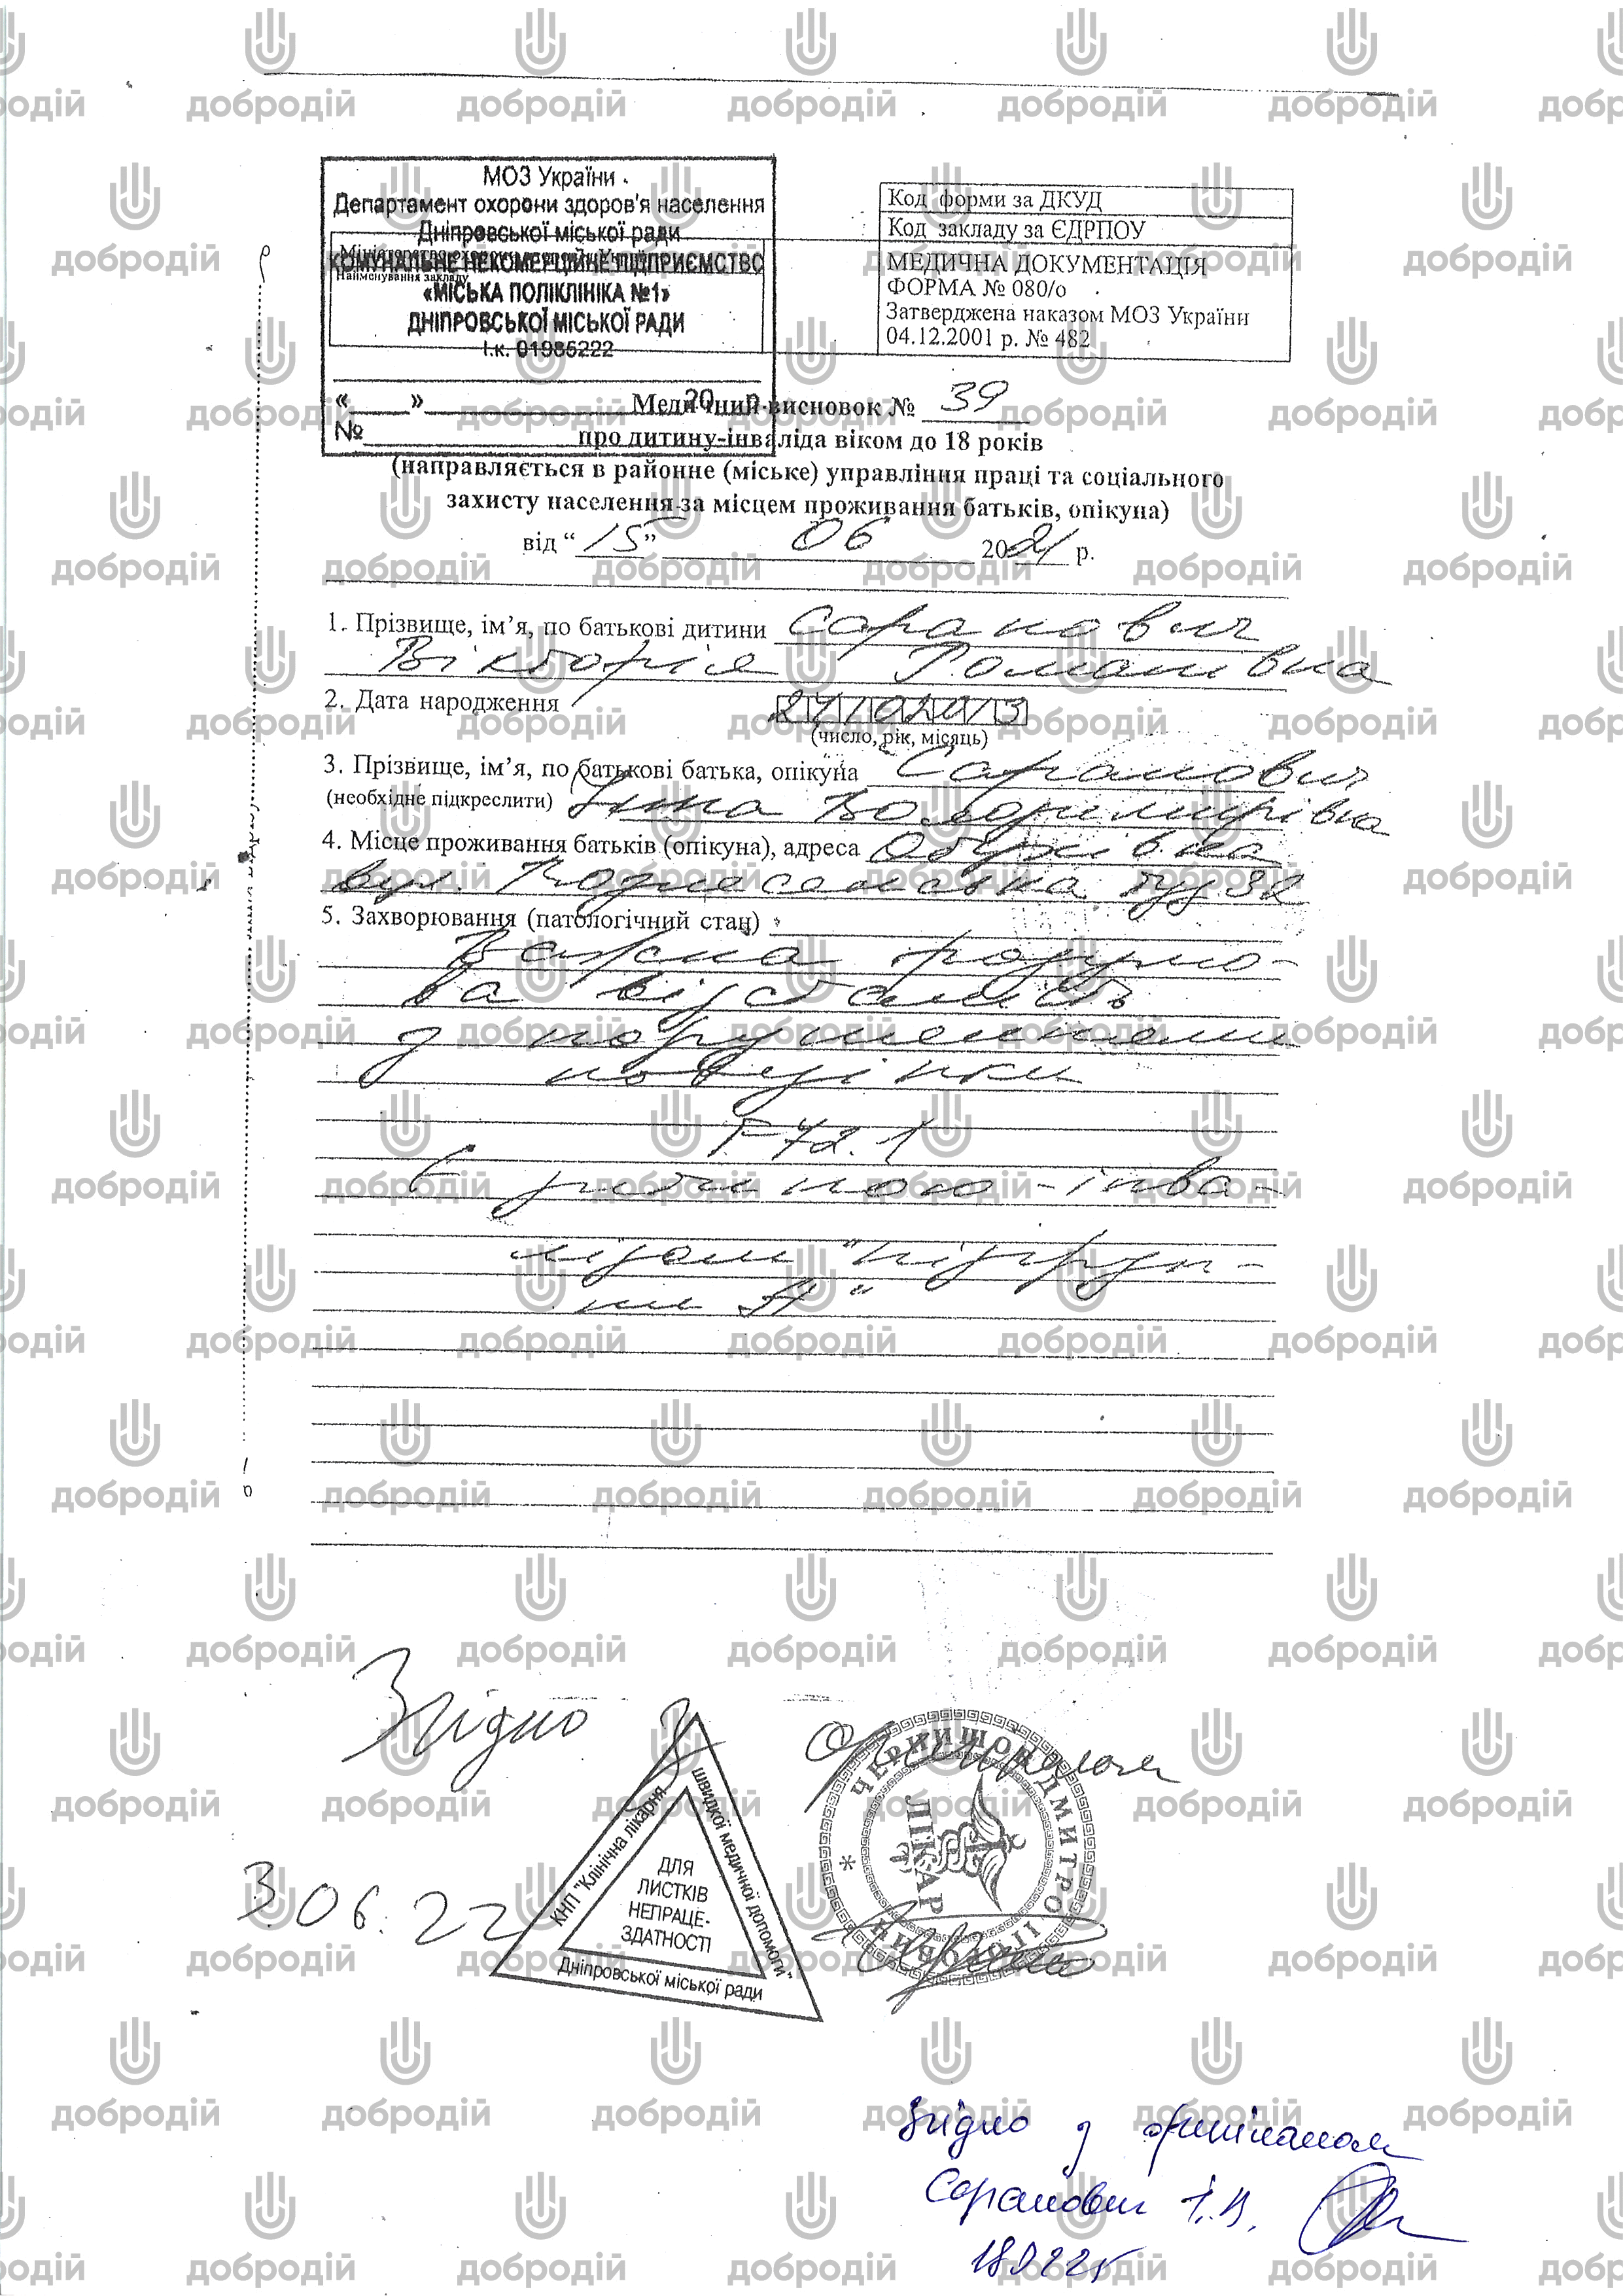 МОЗ України
Департамент охорони здоров'я населення
Дніпровської міської ради
КОМУНАЛЬНЕ НЕКОМЕРЦІЙНЕ ПІДПРИЄМСТВО
Найменування закладу
«МІСЬКА ПОЛІКЛІНІКА №1»
ДНІПРОВСЬКОЇ МІСЬКОЇ РАДИ
І.к. 01985222
«____»____________20__р.
№
Код форми за ДКУД
Код закладу за ЄДРПОУ
МЕДИЧНА ДОКУМЕНТАЦІЯ
ФОРМА № 080/о
Затверджена наказом МОЗ України
04.12.2001 р. № 482
Медичний висновок № 39
про дитину-інваліда віком до 18 років
(направляється в районне (міське) управління праці та соціального
захисту населення за місцем проживання батьків, опікуна)
від “15” 06 2021 р.
1. Прізвище, ім’я, по батькові дитини Саранович
Вікторія Романівна
2. Дата народження
(число, рік, місяць)
3. Прізвище, ім’я, по батькові батька, опікуна Саранович
(необхідне підкреслити) Інна Володимирівна
4. Місце проживання батьків (опікуна), адреса Обухівка
вул. буд 32
5. Захворювання (патологічний стан)
Важка розумо-
ва відсталість
з порушеннями
поведінки
F-72.1
Є дитиною-інва-
лідом "підгруп-
пи А"
Згідно з Оригіналом
3.06.22
КНП "Клінічна лікарня
швидкої медичної допомоги"
Дніпровської міської ради
ДЛЯ
ЛИСТКІВ
НЕПРАЦЕ-
ЗДАТНОСТІ
ДМИТРО ІГОРОВИЧ
ЛІКАР
Згідно з оригіналом
Саранович І.В.
добродій